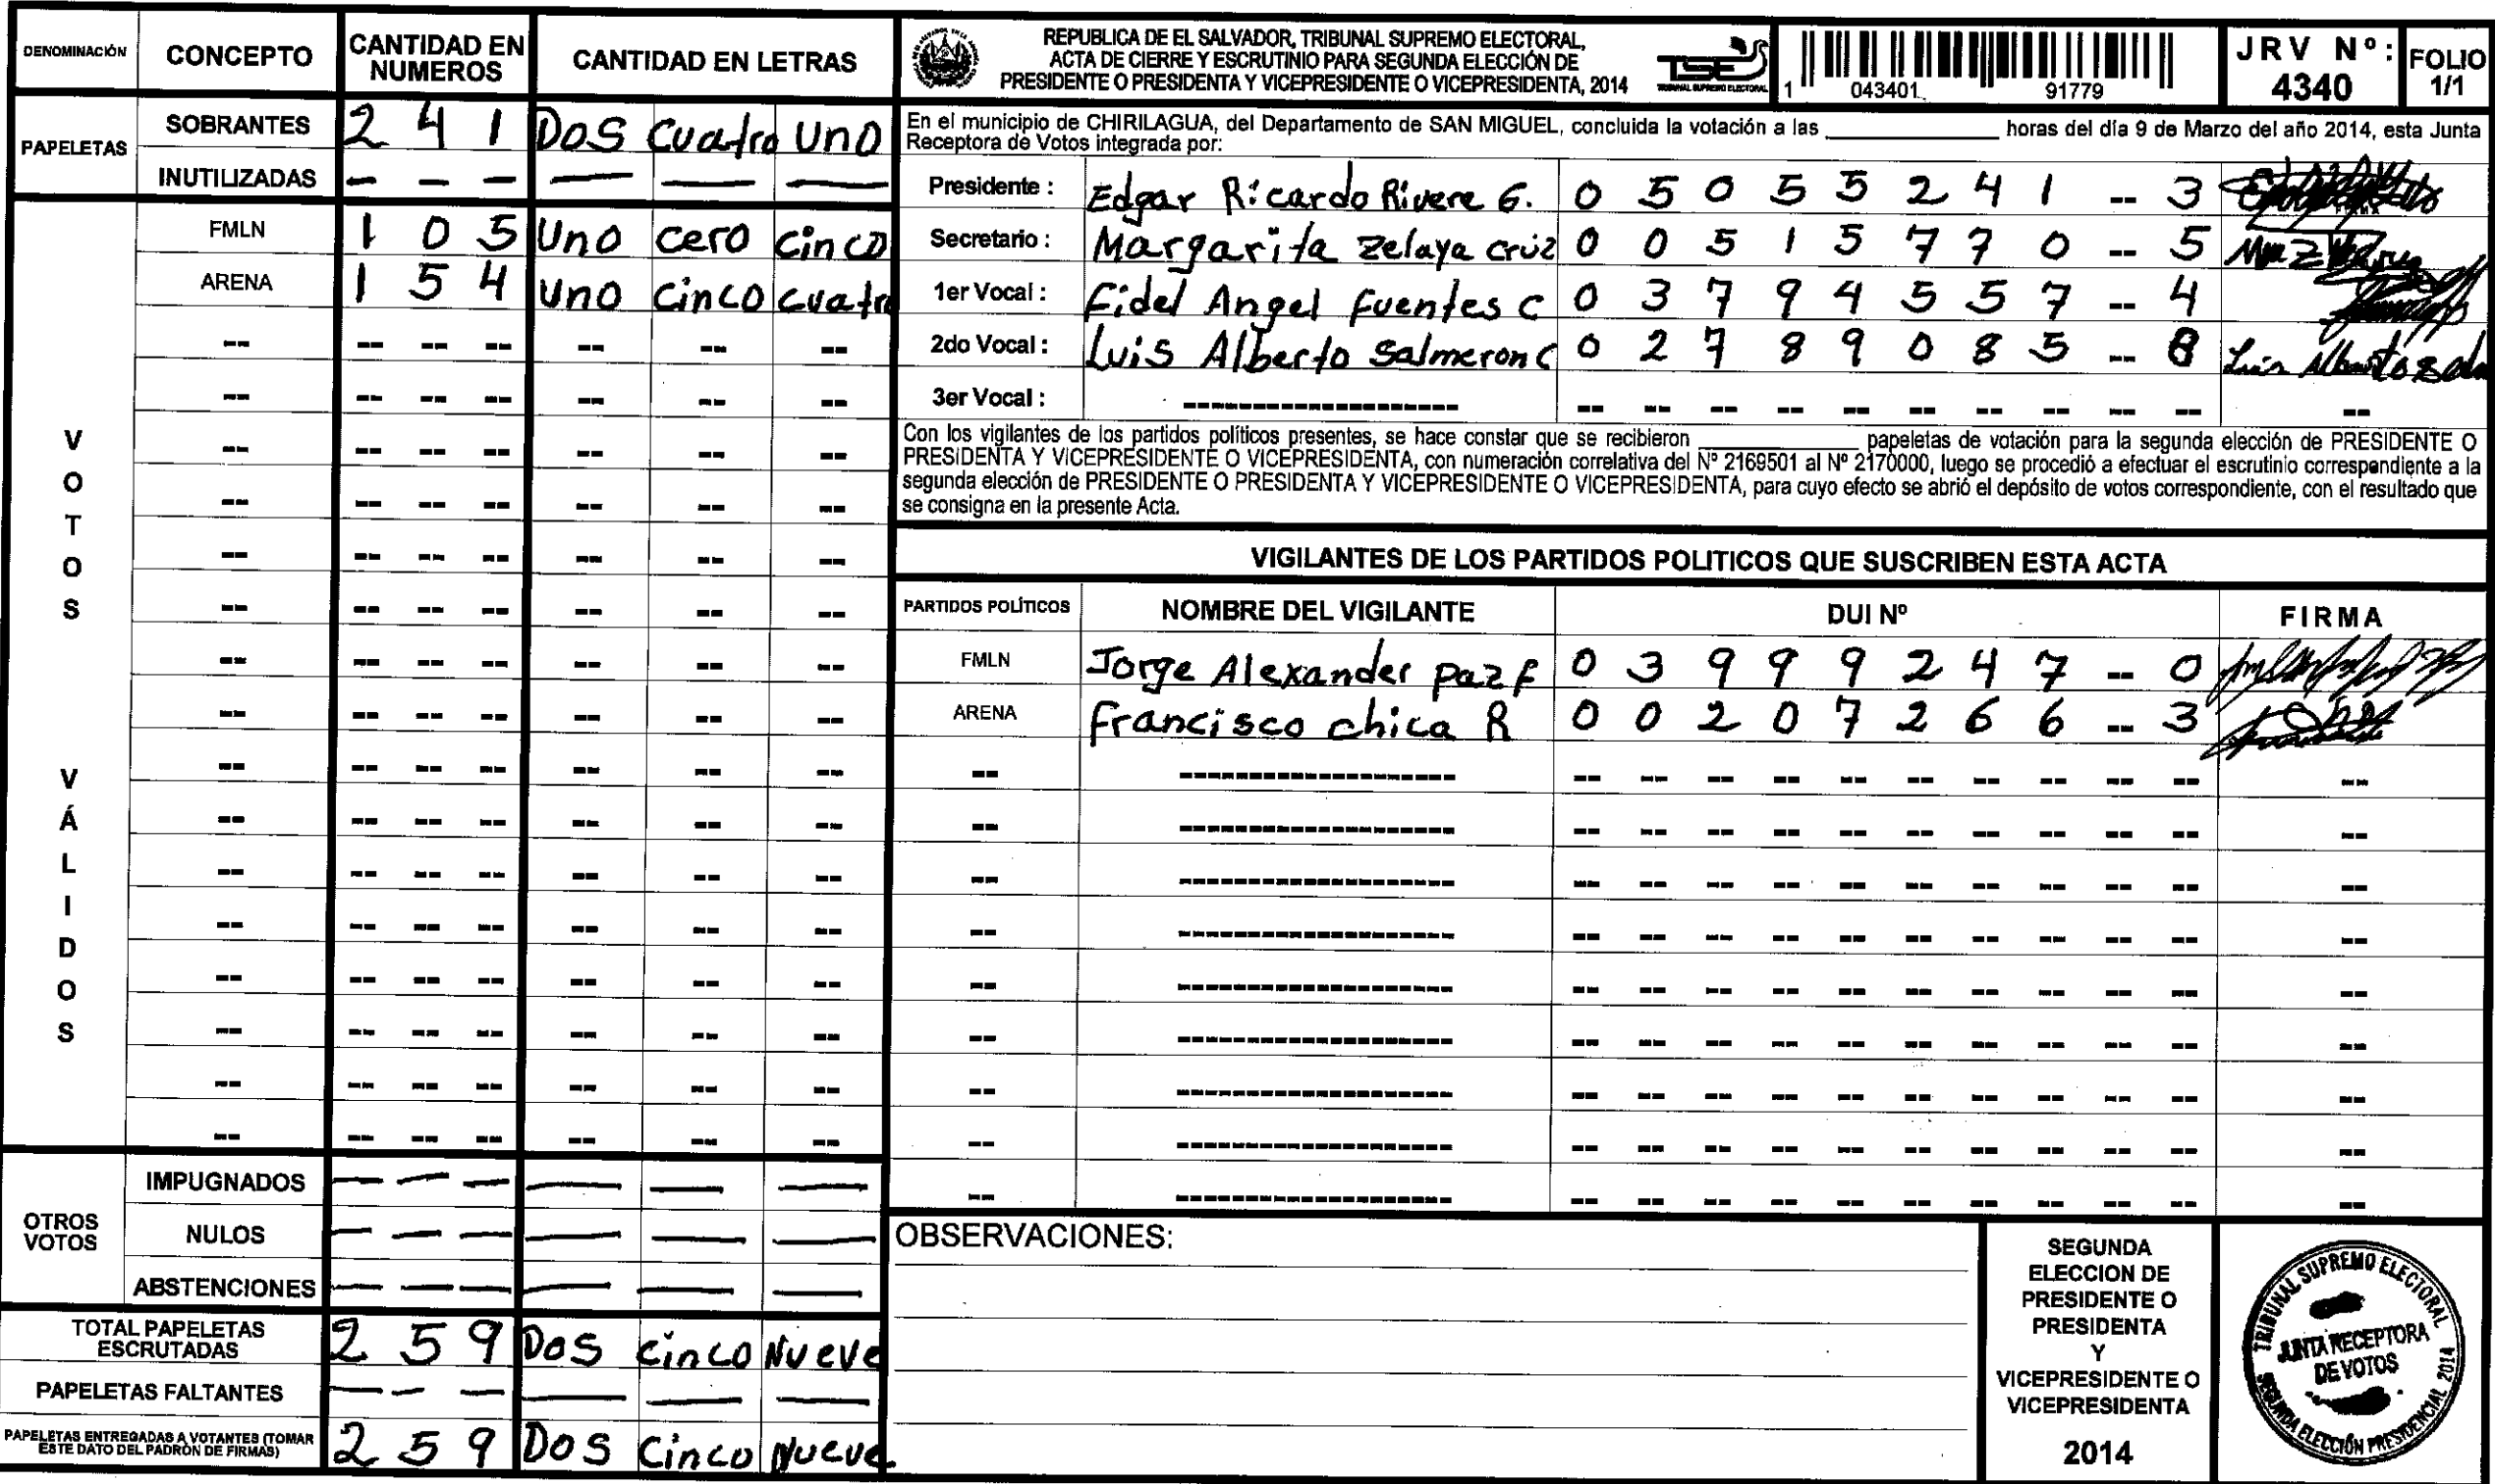 DENOMINACIÓN CONCEPTO CANTIDAD EN NUMEROS CANTIDAD EN LETRAS
PAPELETAS
SOBRANTES 2 4 1 Dos Cuatro Uno
INUTILIZADAS — — — — — —
VOTOS VÁLIDOS
FMLN 1 0 5 Uno cero cinco
ARENA 1 5 4 Uno Cinco cuatro
OTROS VOTOS
IMPUGNADOS — — — — — —
NULOS — — — — — —
ABSTENCIONES — — — — — —
TOTAL PAPELETAS ESCRUTADAS 2 5 9 Dos Cinco Nueve
PAPELETAS FALTANTES — — — — — —
PAPELETAS ENTREGADAS A VOTANTES (TOMAR ESTE DATO DEL PADRÓN DE FIRMAS) 2 5 9 Dos Cinco Nueve
REPUBLICA DE EL SALVADOR, TRIBUNAL SUPREMO ELECTORAL,
ACTA DE CIERRE Y ESCRUTINIO PARA SEGUNDA ELECCIÓN DE
PRESIDENTE O PRESIDENTA Y VICEPRESIDENTE O VICEPRESIDENTA, 2014
TSE
TRIBUNAL SUPREMO ELECTORAL
1 043401 91779
JRV Nº: 4340
FOLIO 1/1
En el municipio de CHIRILAGUA, del Departamento de SAN MIGUEL, concluida la votación a las ____ horas del día 9 de Marzo del año 2014, esta Junta
Receptora de Votos integrada por:
Presidente : Edgar Ricardo Rivere G. 0 5 0 5 5 2 4 1 -- 3
Secretario : Margarita Zelaya cruz 0 0 5 1 5 7 7 0 -- 5
1er Vocal : Fidel Angel Fuentes C 0 3 7 9 4 5 5 7 -- 4
2do Vocal : Luis Alberto Salmeron C 0 2 7 8 9 0 8 5 -- 8 Luis Alberto
3er Vocal : --
Con los vigilantes de los partidos políticos presentes, se hace constar que se recibieron ____ papeletas de votación para la segunda elección de PRESIDENTE O
PRESIDENTA Y VICEPRESIDENTE O VICEPRESIDENTA, con numeración correlativa del Nº 2169501 al Nº 2170000, luego se procedió a efectuar el escrutinio correspondiente a la
segunda elección de PRESIDENTE O PRESIDENTA Y VICEPRESIDENTE O VICEPRESIDENTA, para cuyo efecto se abrió el depósito de votos correspondiente, con el resultado que
se consigna en la presente Acta.
VIGILANTES DE LOS PARTIDOS POLITICOS QUE SUSCRIBEN ESTA ACTA
PARTIDOS POLÍTICOS NOMBRE DEL VIGILANTE DUI Nº FIRMA
FMLN Jorge Alexander paz F 0 3 9 9 9 2 4 7 -- 0
ARENA Francisco chica R 0 0 2 0 7 2 6 6 -- 3
OBSERVACIONES:
SEGUNDA
ELECCION DE
PRESIDENTE O
PRESIDENTA
Y
VICEPRESIDENTE O
VICEPRESIDENTA
2014
TRIBUNAL SUPREMO ELECTORAL
JUNTA RECEPTORA
DE VOTOS
SEGUNDA ELECCIÓN PRESIDENCIAL 2014